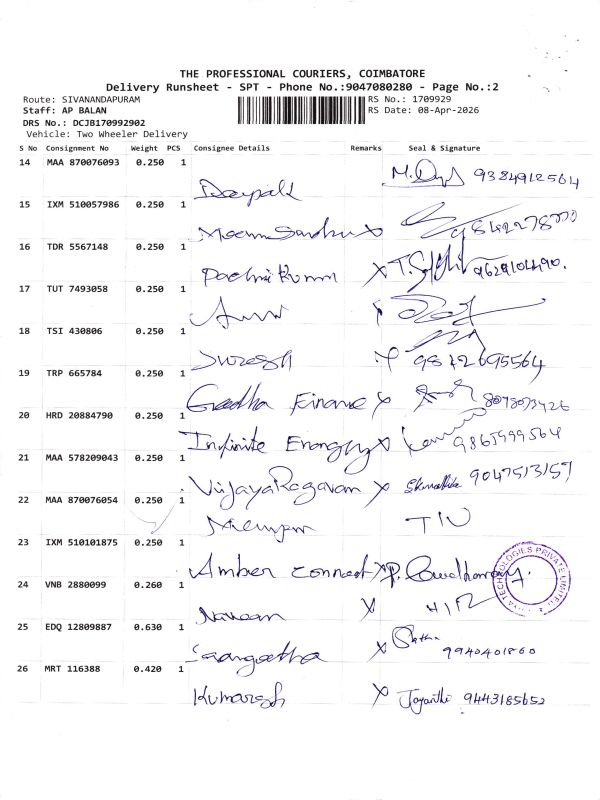 THE PROFESSIONAL COURIERS, COIMBATORE
Delivery Runsheet - SPT - Phone No.:9047080280 - Page No.:2
Route: SIVANANDAPURAM
RS No.: 1709929
Staff: AP BALAN
RS Date: 08-Apr-2026
DRS No.: DCJB170992902
Vehicle: Two Wheeler Delivery
S No Consignment No Weight PCS Consignee Details Remarks Seal & Signature
14 MAA 870076093 0.250 1
Deepak 9384912564
15 IXM 510057986 0.250 1
x
16 TDR 5567148 0.250 1
x 9629104490.
17 TUT 7493058 0.250 1
18 TSI 430806 0.250 1
Suresh 9842695564
19 TRP 665784 0.250 1
Geetha Finance x 8078073426
20 HRD 20884790 0.250 1
Infinite x 9865999564
21 MAA 578209043 0.250 1
VijayaRagavan x 9047513157
22 MAA 870076054 0.250 1
23 IXM 510101875 0.250 1
Amber connect x
24 VNB 2880099 0.260 1
Naveen x
25 EDQ 12809887 0.630 1
x 9940401860
26 MRT 116388 0.420 1
Kumaresh x Jayanthi 9443185652